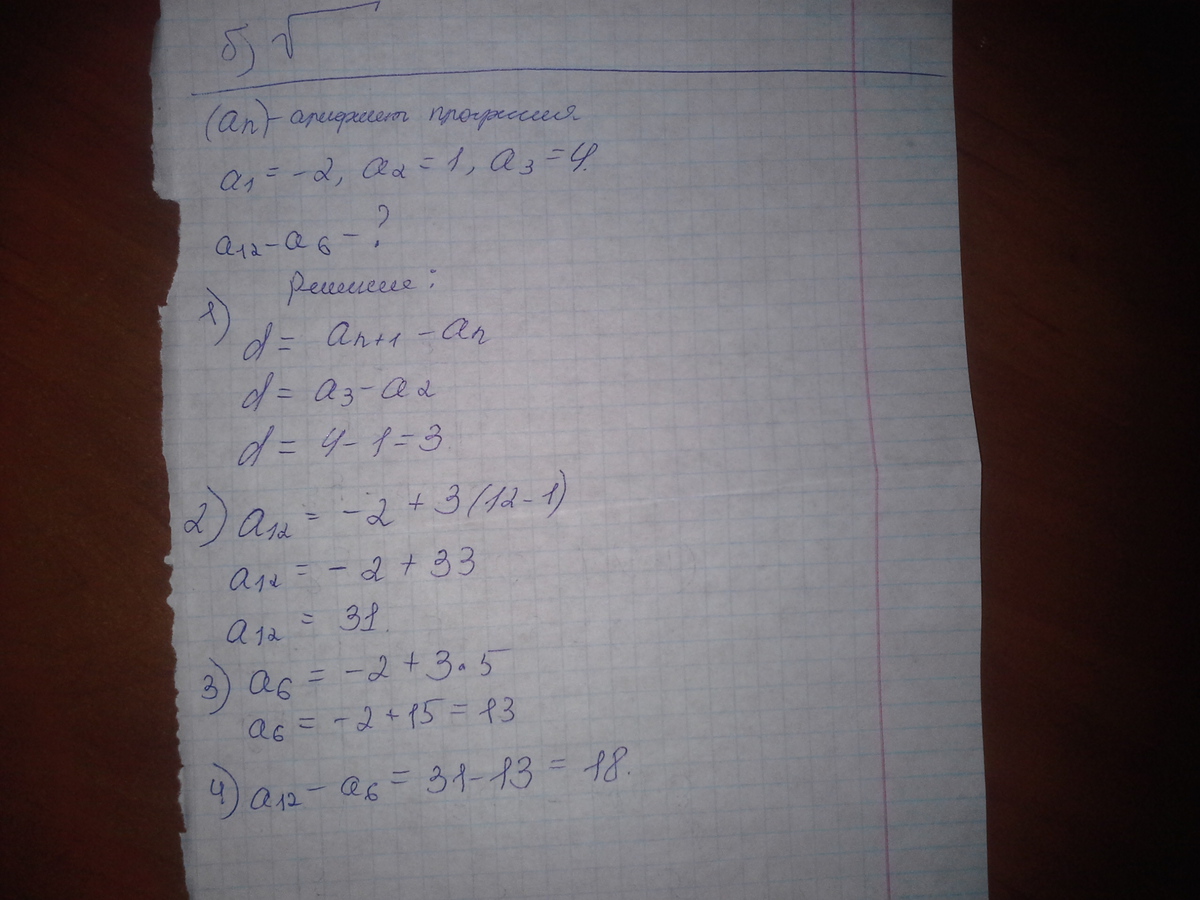 б) √
(an) - арифмет прогрессия
a1 = -2, a2 = 1, a3 = 4.
a12 - a6 - ?
Решение:
1) d = an+1 - an
d = a3 - a2
d = 4 - 1 = 3
2) a12 = -2 + 3(12-1)
a12 = -2 + 33
a12 = 31.
3) a6 = -2 + 3·5
a6 = -2 + 15 = 13
4) a12 - a6 = 31 - 13 = 18.